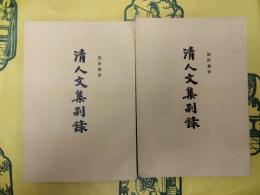 張舜徽著
清人文集别錄
張舜徽著
清人文集别錄